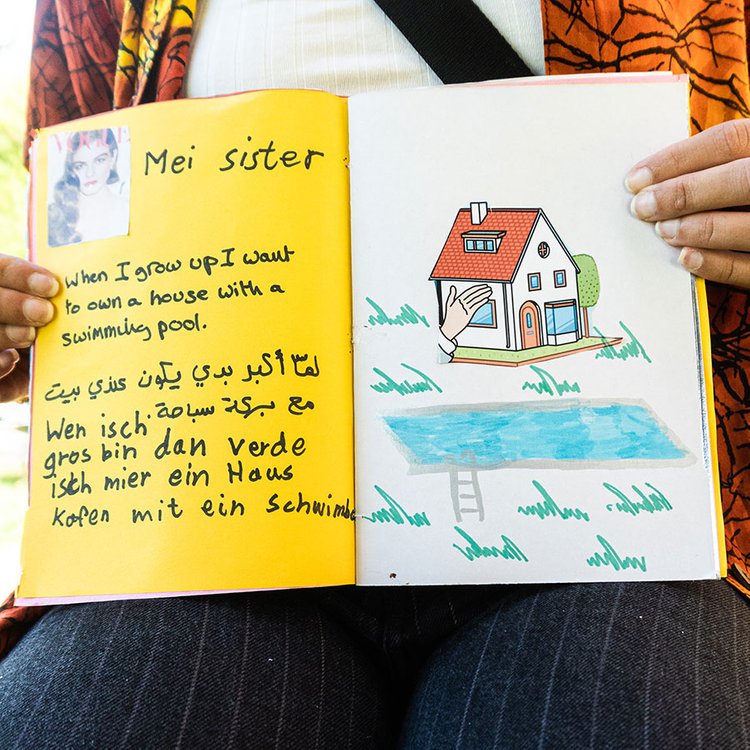 VOGUE
Mei sister
When I grow up I want
to own a house with a
swimming pool.
لمّا أكبر بدي يكون عندي بيت
مع بركة سباحة.
Wen isch
gros bin dan verde
isch mier ein Haus
kofen mit ein Schwimba